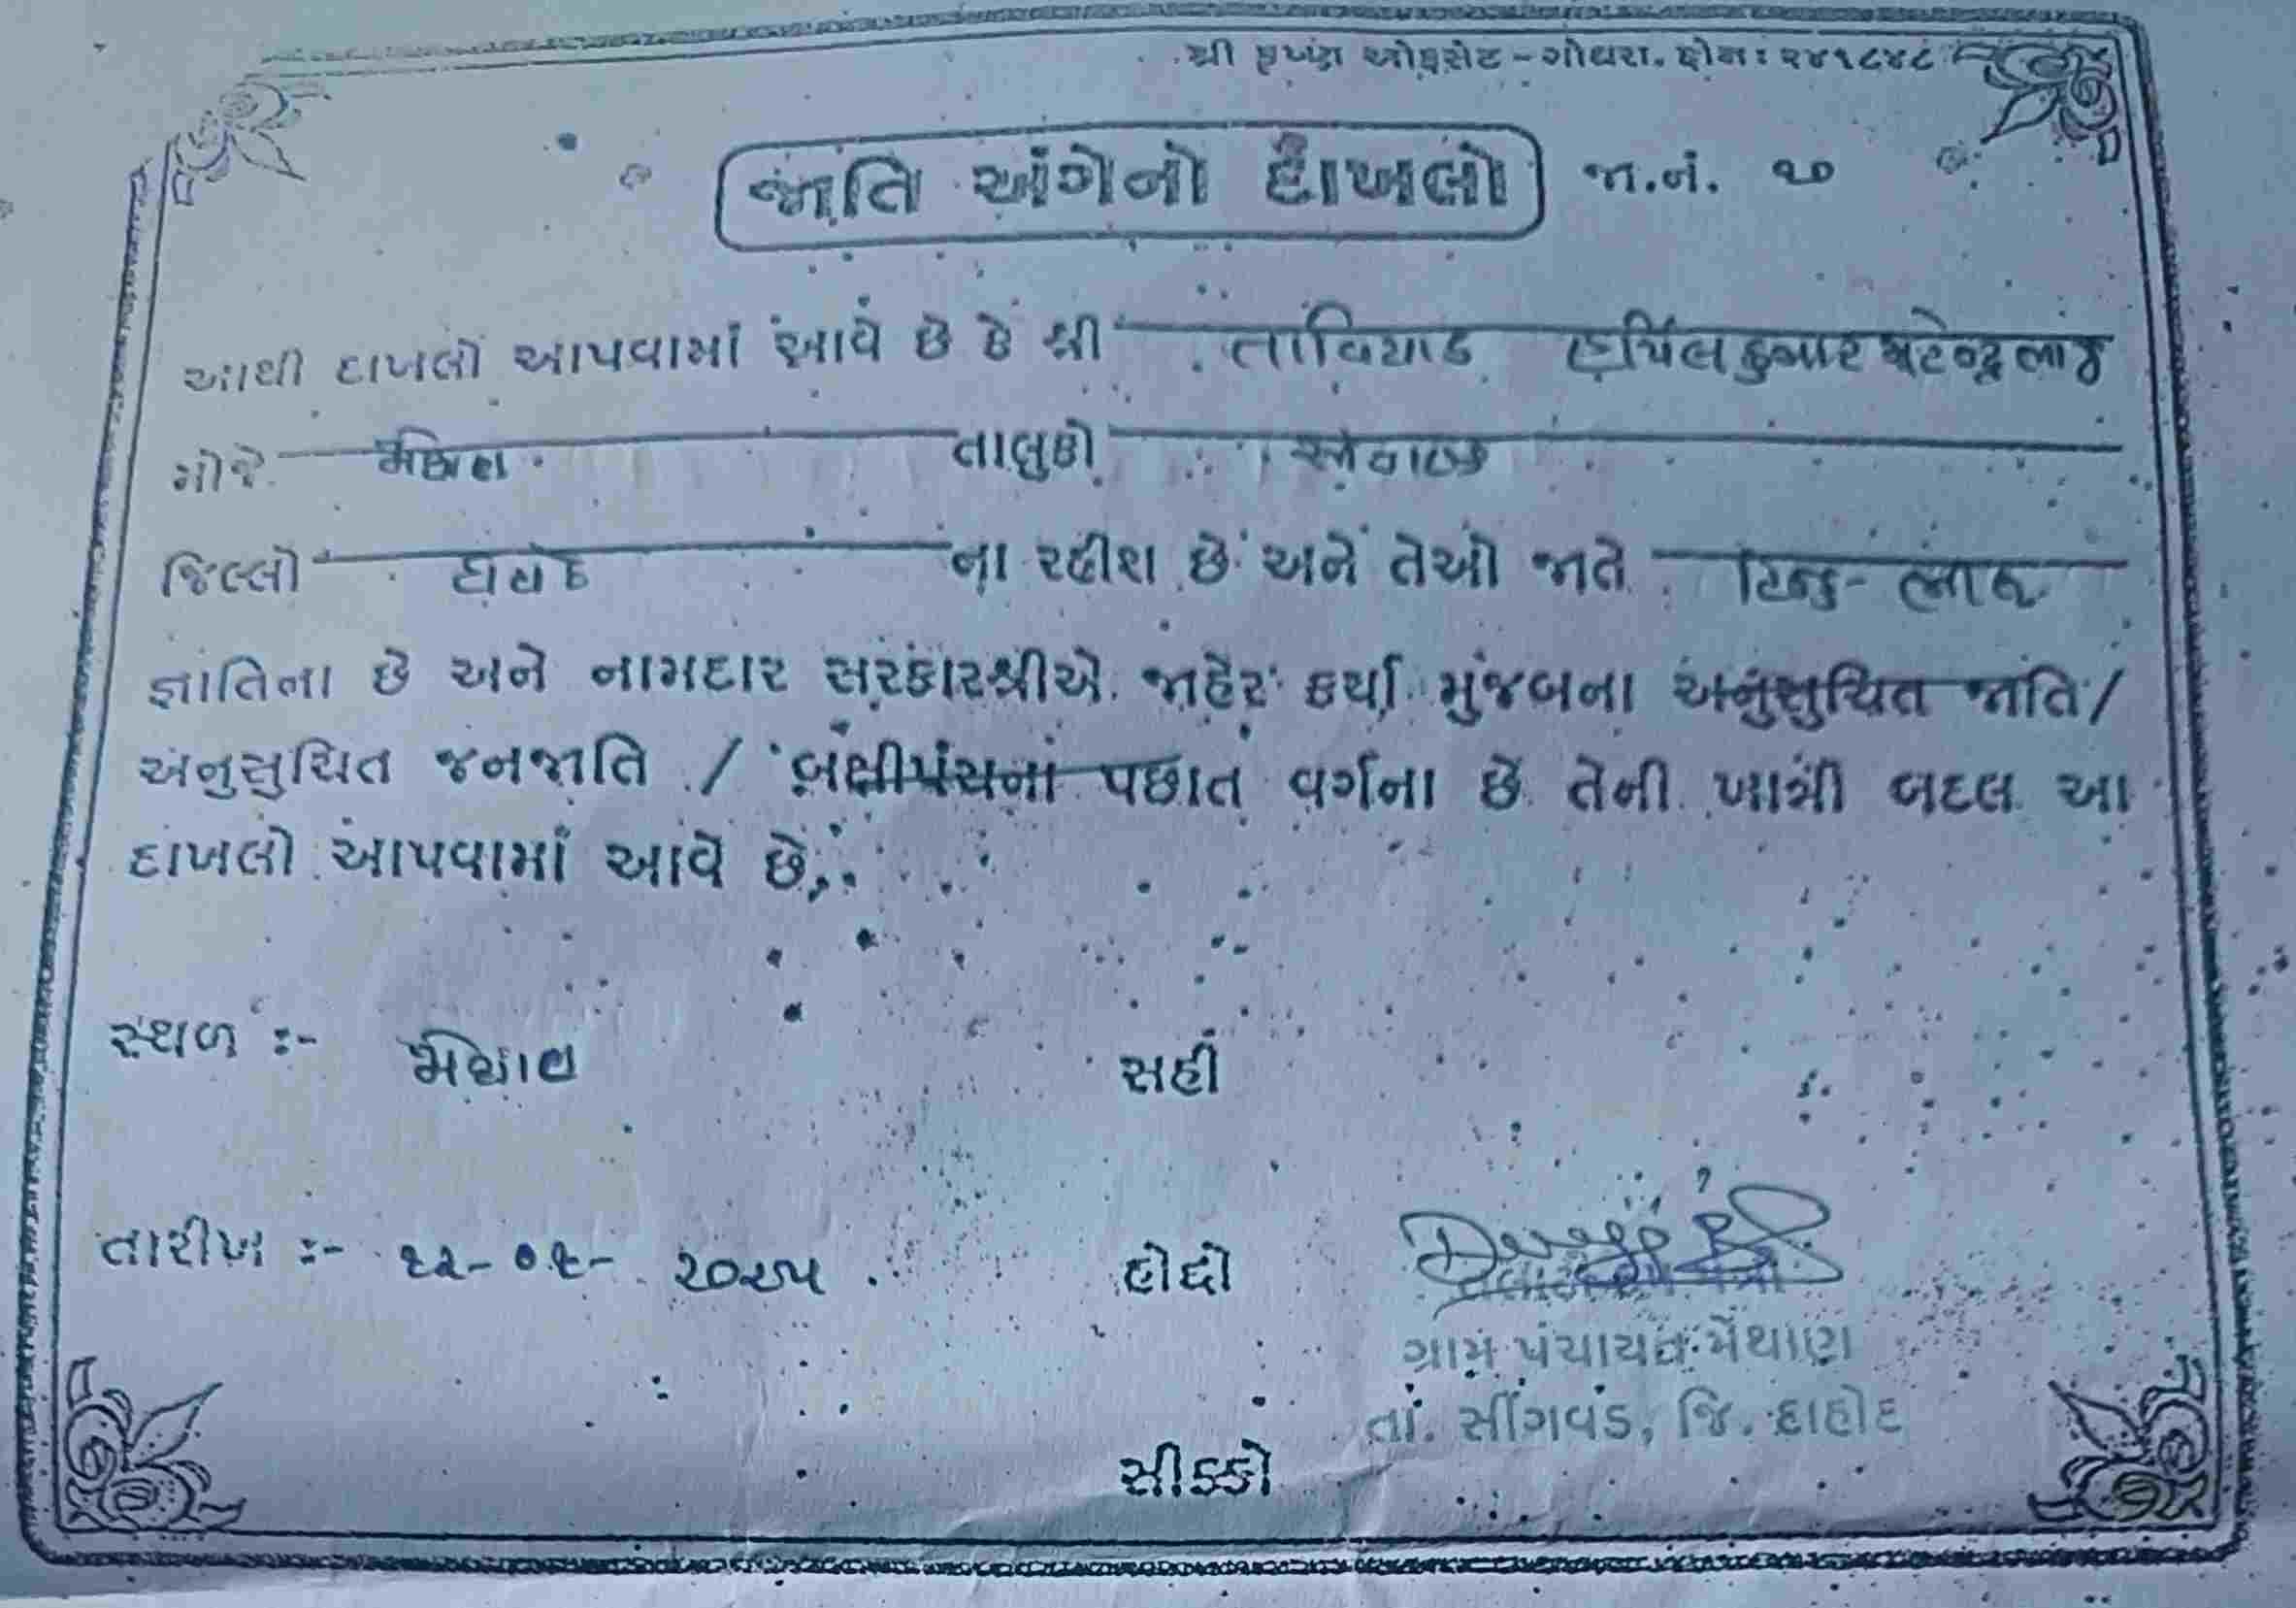 શ્રી કૃષ્ણ ઓફસેટ - ગોધરા. ફોન : ૨૪૧૮૪૮
જાતિ અંગેનો દાખલો જા.નં. ૨૦
આથી દાખલો આપવામાં આવે છે કે શ્રી તાવિયાડ
મોજે મેથાણ તાલુકો
જિલ્લો દાહોદ ના રહીશ છે અને તેઓ જાતે હિન્દુ - ભીલ
જ્ઞાતિના છે અને નામદાર સરકારશ્રીએ જાહેર કર્યા મુજબના અનુસુચિત જાતિ /
અનુસુચિત જનજાતિ / બક્ષીપંચના પછાત વર્ગના છે તેની ખાત્રી બદલ આ
દાખલો આપવામાં આવે છે.
સ્થળ :- મેથાણ સહી
તારીખ :- ૧૨-૦૧- ૨૦૨૫ હોદ્દો
ગ્રામ પંચાયત મેથાણ
તા. સીંગવડ, જિ. દાહોદ
સીક્કો